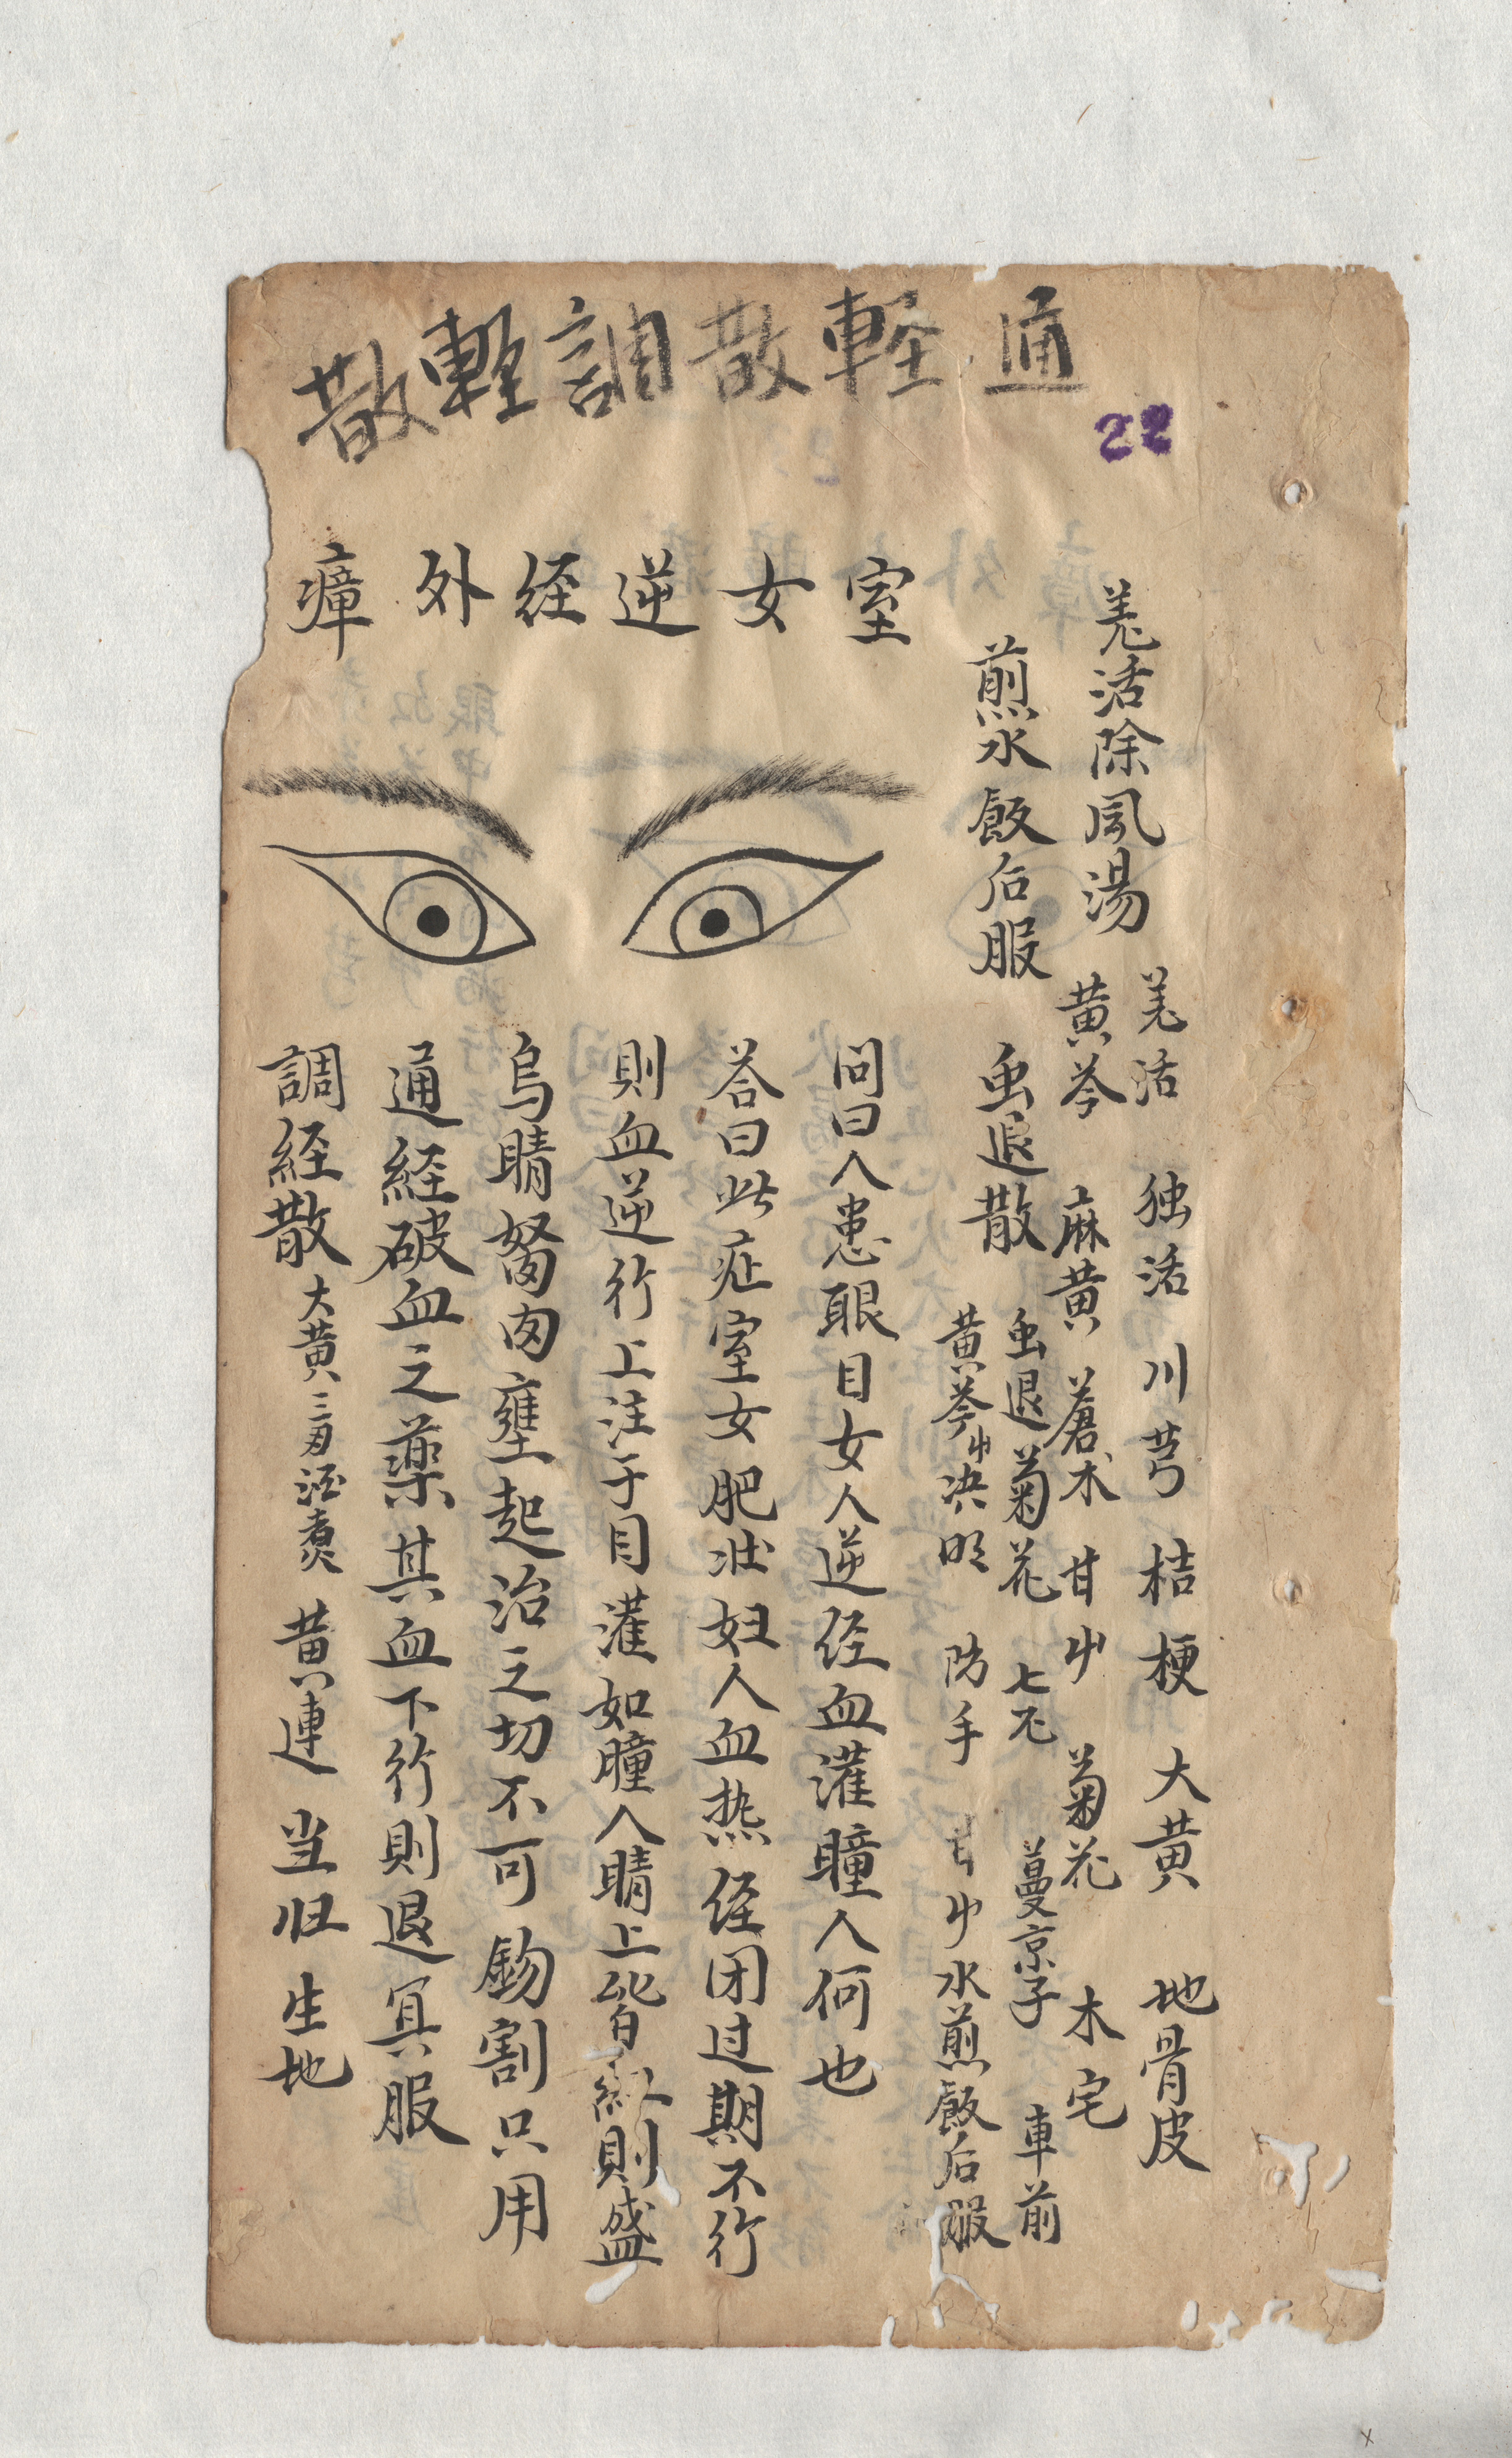 通輕散調輕散
22
羗活除風湯
羗活 独活 川芎 桔梗 大黄 地骨皮
黄芩 麻黄 蒼术 甘屮 菊花 木宅
煎水飯后服
虫退散
虫退 菊花 蔓京子 車前
黄芩 屮决明 防手 甘屮 水煎飯后服
室女逆经外瘴
问曰人患眼目女人逆经血灌瞳人何也
荅曰此症室女肥壮妇人血热经闭过期不行
則血逆行上注于目灌如瞳人睛上皆紅則盛
烏睛胬肉壅起治之切不可鈎割只用
通経破血之藥其血下行則退冝服
調経散 大黄 三 酒煮 黄連 当归 生地